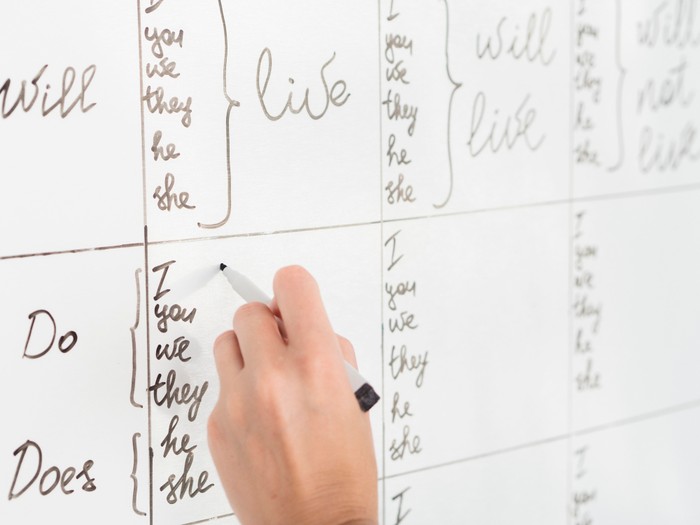 will
I
you
we
they
he
she
live
I
you
we
they
he
she
will
live
I
you
we
they
he
she
will
not
live
Do
Does
I
you
we
they
he
she
I
you
we
they
he
she
I
you
we
they
he
she
I
I
you